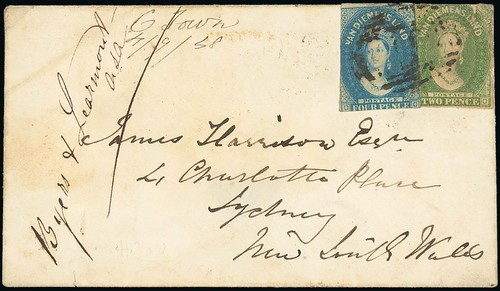 C Town
/9/58
Byers & Learmont
VAN DIEMENS LAND
POSTAGE
FOUR PENCE
VAN DIEMENS LAND
POSTAGE
TWO PENCE
James Harrison Esqre
4 Charlotte Place
Sydney
New South Wales